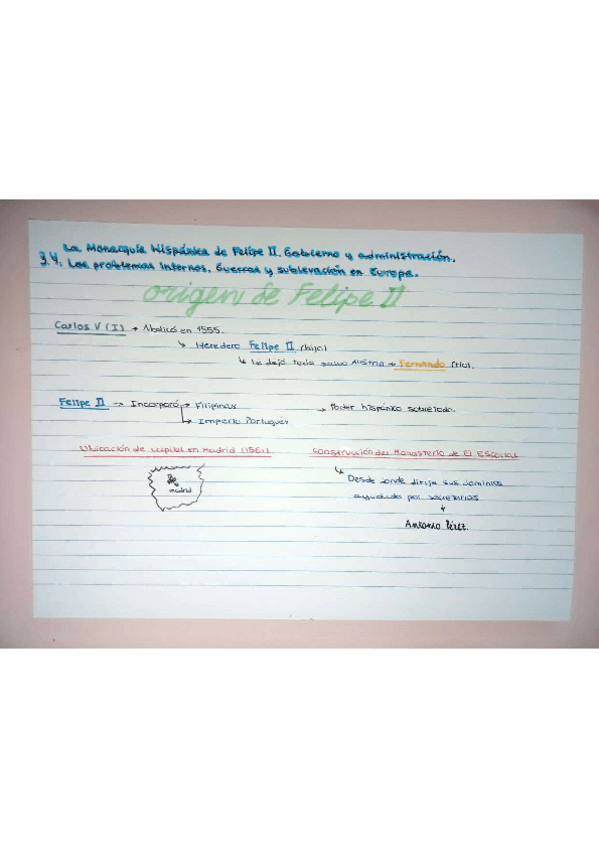 La Monarquía Hispánica de Felipe II. Gobierno y administración.
3.4. Los problemas internos. Guerras y sublevación en Europa.
Origen de Felipe II
Carlos V (I) → Abdicó en 1555.
↳ Heredero Felipe II (hijo)
↳ Le dejó todo salvo Austria → Fernando (tío).
Felipe II → Incorporó → Filipinas → Poder hispánico sobre todo.
↳ Imperio Portugués
Ubicación de capital en Madrid (1561) Construcción del Monasterio de El Escorial
↳ Desde donde dirigía sus dominios
madrid
ayudado por secretarios
↓
Antonio Pérez.